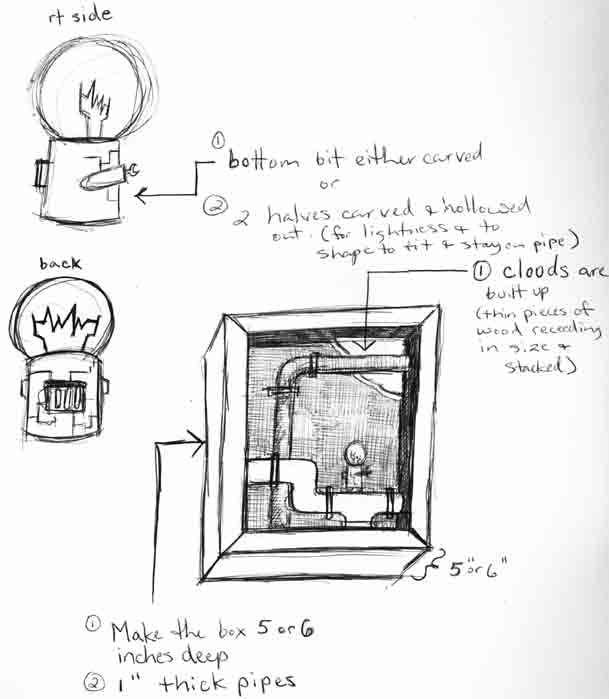 rt side
① bottom bit either carved
or
② 2 halves carved & hollowed
out. (for lightness & to
shape to fit & stay on pipe)
back
① clouds are
built up
(thin pieces of
wood receeding
in size &
stacked)
5" or 6"
① Make the box 5 or 6
inches deep
② 1" thick pipes